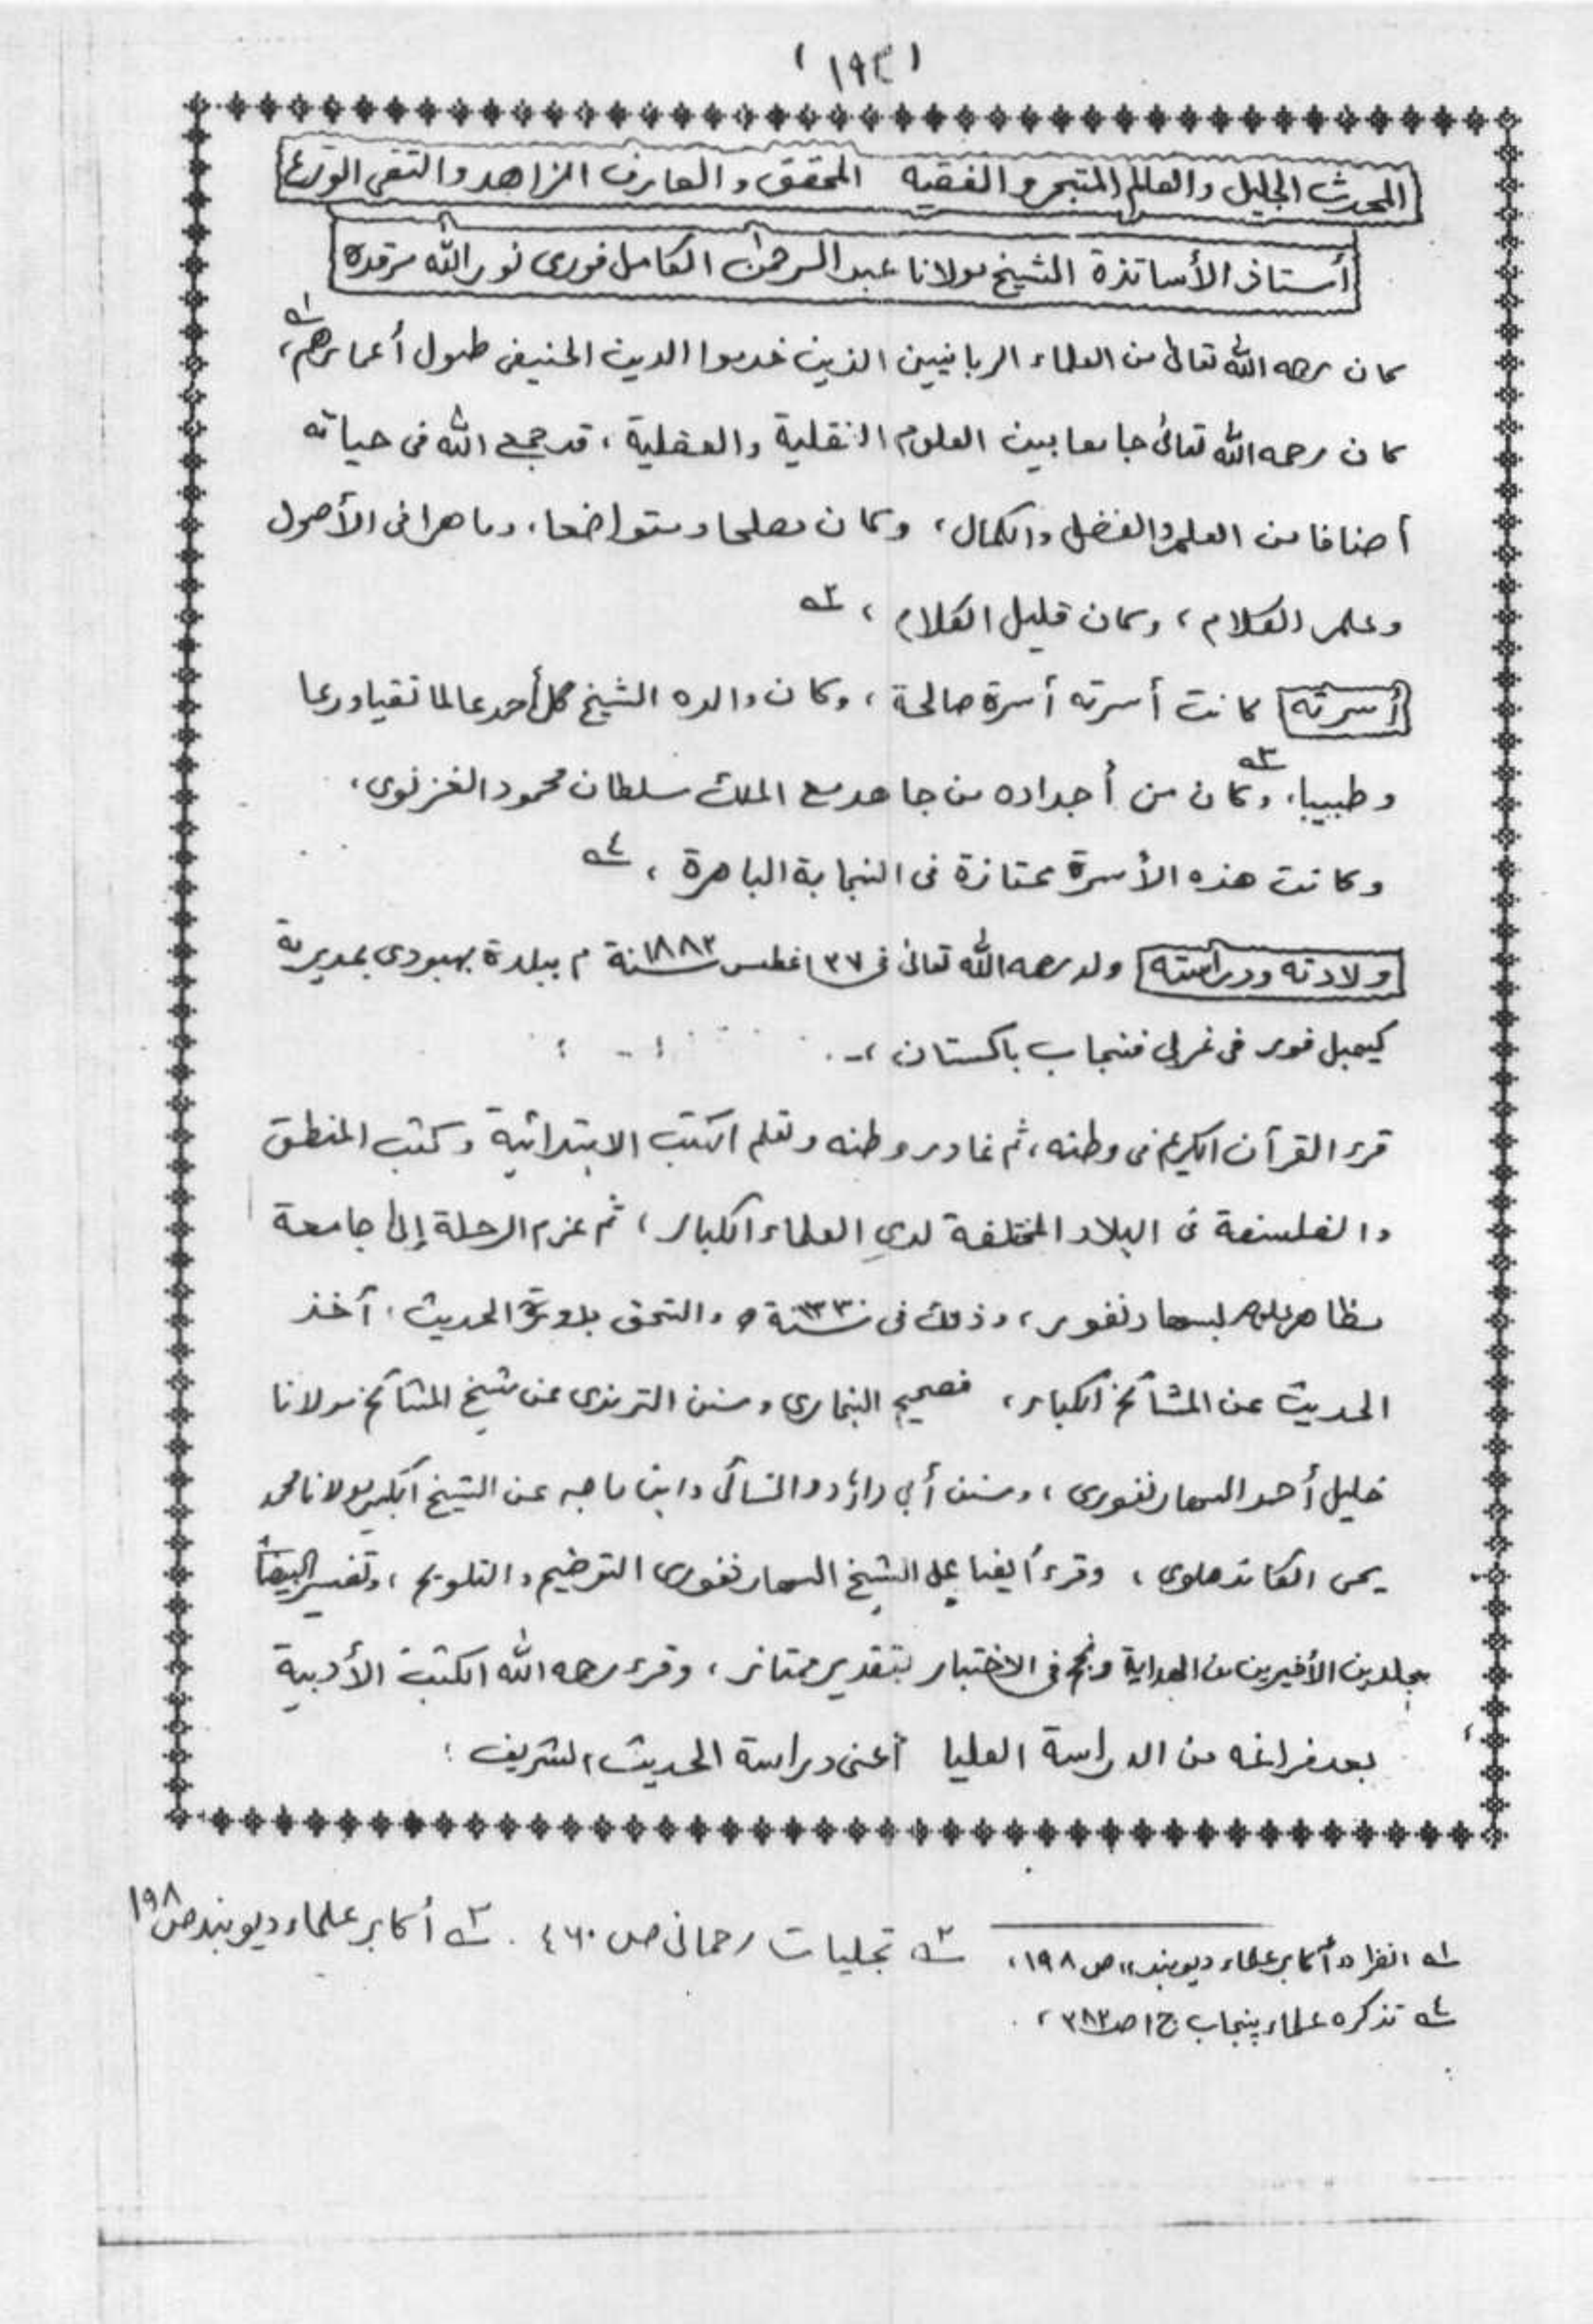 (١٩٤)
المحدث الجليل والعالم المتبحر والفقيه المحقق والعارف الزاهد والتقى الورع
أستاذ الأساتذة الشيخ مولانا عبد الرحمن الكامل فورى نور الله مرقده
كان رحمه الله تعالى من العلماء الربانيين الذين خدموا الدين الحنيف طول أعمارهم، ١ـه
كان رحمه الله تعالى جامعا بين العلوم النقلية والعقلية، قد جمع الله فى حياته
أصنافا من العلم والفضل والكمال، وكان مصلحا ومتواضعا، وماهرا فى الأصول
وعلم الكلام، وكان قليل الكلام، ٢ـه
أسرته كانت أسرته أسرة صالحة، وكان والده الشيخ گل أحمد عالما تقيا ورعا
وطبيبا، ٣ـه وكان من أجداده من جاهد مع الملك سلطان محمود الغزنوى،
وكانت هذه الأسرة ممتازة فى النجابة الباهرة، ٤ـه
ولادته ودراسته ولد رحمه الله تعالى فى ٢٧ اغطس سنة ١٨٨٢ م ببلدة بهبودى بمديرية
كيمبل فور فى غربى فنجاب باكستان،
قرء القرآن الكريم فى وطنه، ثم غادر وطنه وتعلم الكتب الابتدائية وكتب المنطق
والفلسفة فى البلاد المختلفة لدى العلماء الكبار، ثم عزم الرحلة إلى جامعة
مظاهر علوم بسهارنفور، وذلك فى سنة ١٣٣٠ ه والتحق بدورة الحديث، آخذ
الحديث عن المشائخ الكبار، فصحيح البخارى وسنن الترمذى عن شيخ المشائخ مولانا
خليل أحمد السهارنفورى، وسنن أبي داؤد والنسائى وابن ماجه عن الشيخ الكبير مولانا محمد
يحى الكاندهلوى، وقرء أيضا على الشيخ السهارنفورى التوضيح والتلويح، وتفسير البيضا
بجلدين الأخيرين من الهداية ونجح فى الاختبار بتقدير ممتاز، وقرء رحمه الله الكتب الأدبية
بعد فراغه من الدراسة العليا أعنى دراسة الحديث الشريف؛
١ـه انظر «أكابر علماء ديوبند» ص ١٩٨، ٢ـه تجليات رحمانى ص ٤٦٠. ٣ـه أكابر علماء ديوبند ص ١٩٨
٤ـه تذكره علماء پنجاب ج ١ ص ٣٨٢،